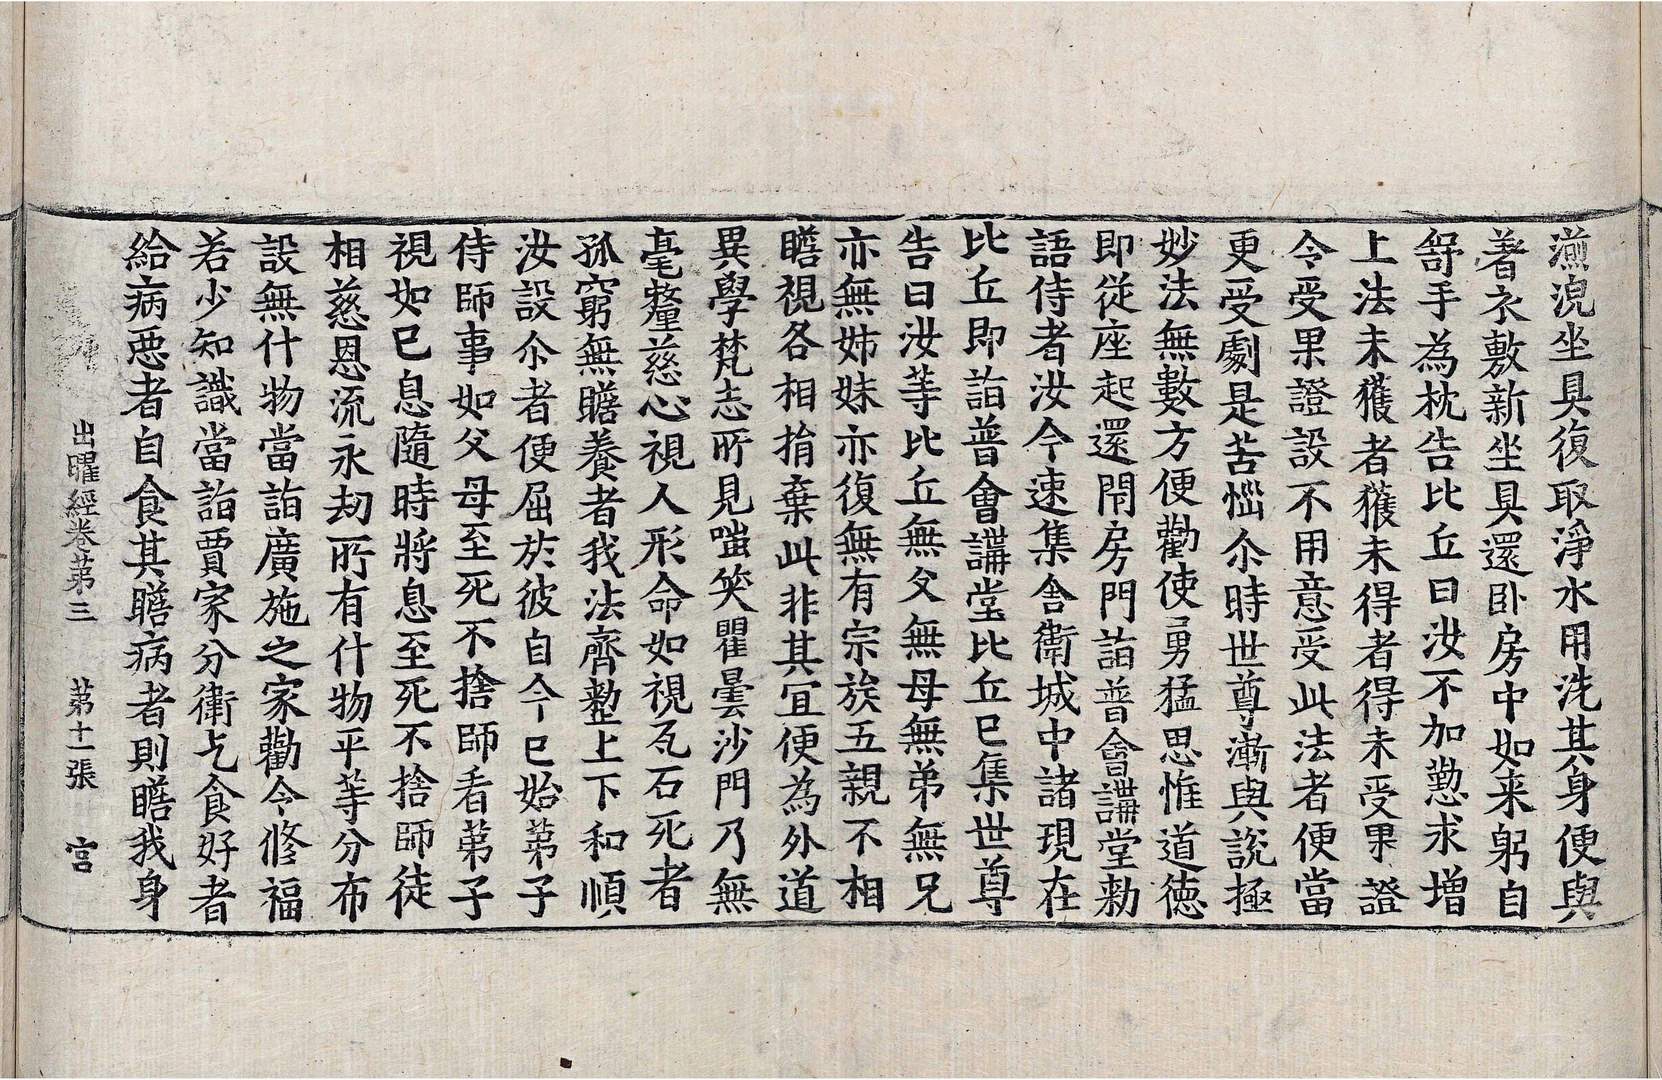 㵎浼坐具復取淨水用洗其身便與
著衣敷新坐具還卧房中如来躬自
舒手為枕告比丘曰汝不加懃求增
上法未獲者獲未得者得未受果證
令受果證設不用意受此法者便當
更受劇是苦惱尒時世尊漸與說極
妙法無數方便勸使勇猛思惟道德
即從座起還閇房門詣普會講堂勑
語侍者汝今速集舎衛城中諸現在
比丘即詣普會講堂比丘已集世尊
告曰汝等比丘無父無母無弟無兄
亦無姊妹亦復無有宗族五親不相
瞻視各相捐棄此非其冝便為外道
異學梵志所見嗤笑瞿曇沙門乃無
毫氂慈心視人形命如視瓦石死者
孤窮無瞻養者我法齊整上下和順
汝設尒者便屈於彼自今已始苐子
侍師事如父母至死不捨師看苐子
視如已息隨時將息至死不捨師徒
相慈恩流永劫所有什物平等分布
設無什物當詣廣施之家勸令修福
若少知識當詣賈家分衛乞食好者
給病惡者自食其瞻病者則瞻我身
出曜經卷苐三 苐十一張 宮